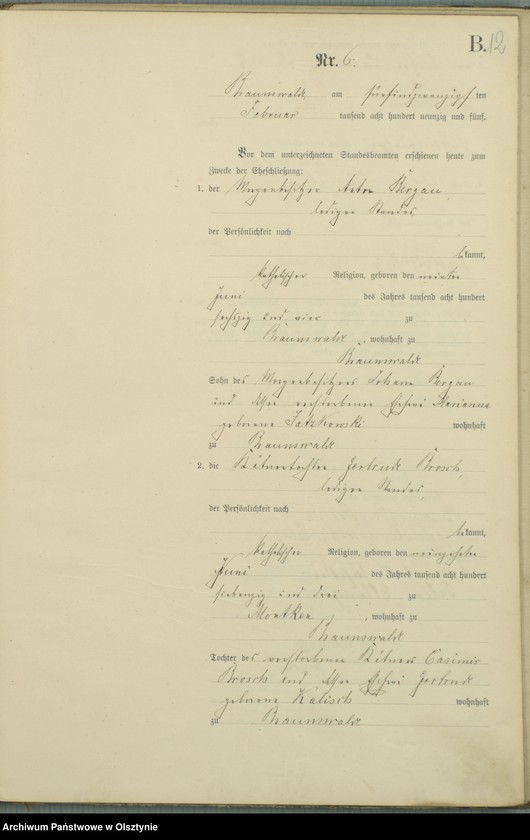 B. 12
Nr. 6.
Braunswalde am fünfundzwanzigsten
Februar tausend acht hundert neunzig und fünf.
Vor dem unterzeichneten Standesbeamten erschienen heute zum
Zwecke der Eheschließung:
1. der Anton Bergau,
ledigen Standes,
der Persönlichkeit nach
bekannt,
katholischer Religion, geboren den neunten
Juni des Jahres tausend acht hundert
sechszig und vier zu
Braunswalde, wohnhaft zu
Braunswalde,
Sohn des Johann Bergau
und verstorbenen Ehefrau Marianna
geborene Jatzkowski wohnhaft
zu Braunswalde
2. die Gertrude Brosch,
ledigen Standes,
der Persönlichkeit nach
bekannt,
katholischer Religion, geboren den neunzehnten
Juni des Jahres tausend acht hundert
siebenzig und drei zu
Montken, wohnhaft zu
Braunswalde
Tochter des verstorbenen Kätners Casimir
Brosch und Ehefrau Gertrude
geborene Kalisch wohnhaft
zu Braunswalde
Archiwum Państwowe w Olsztynie